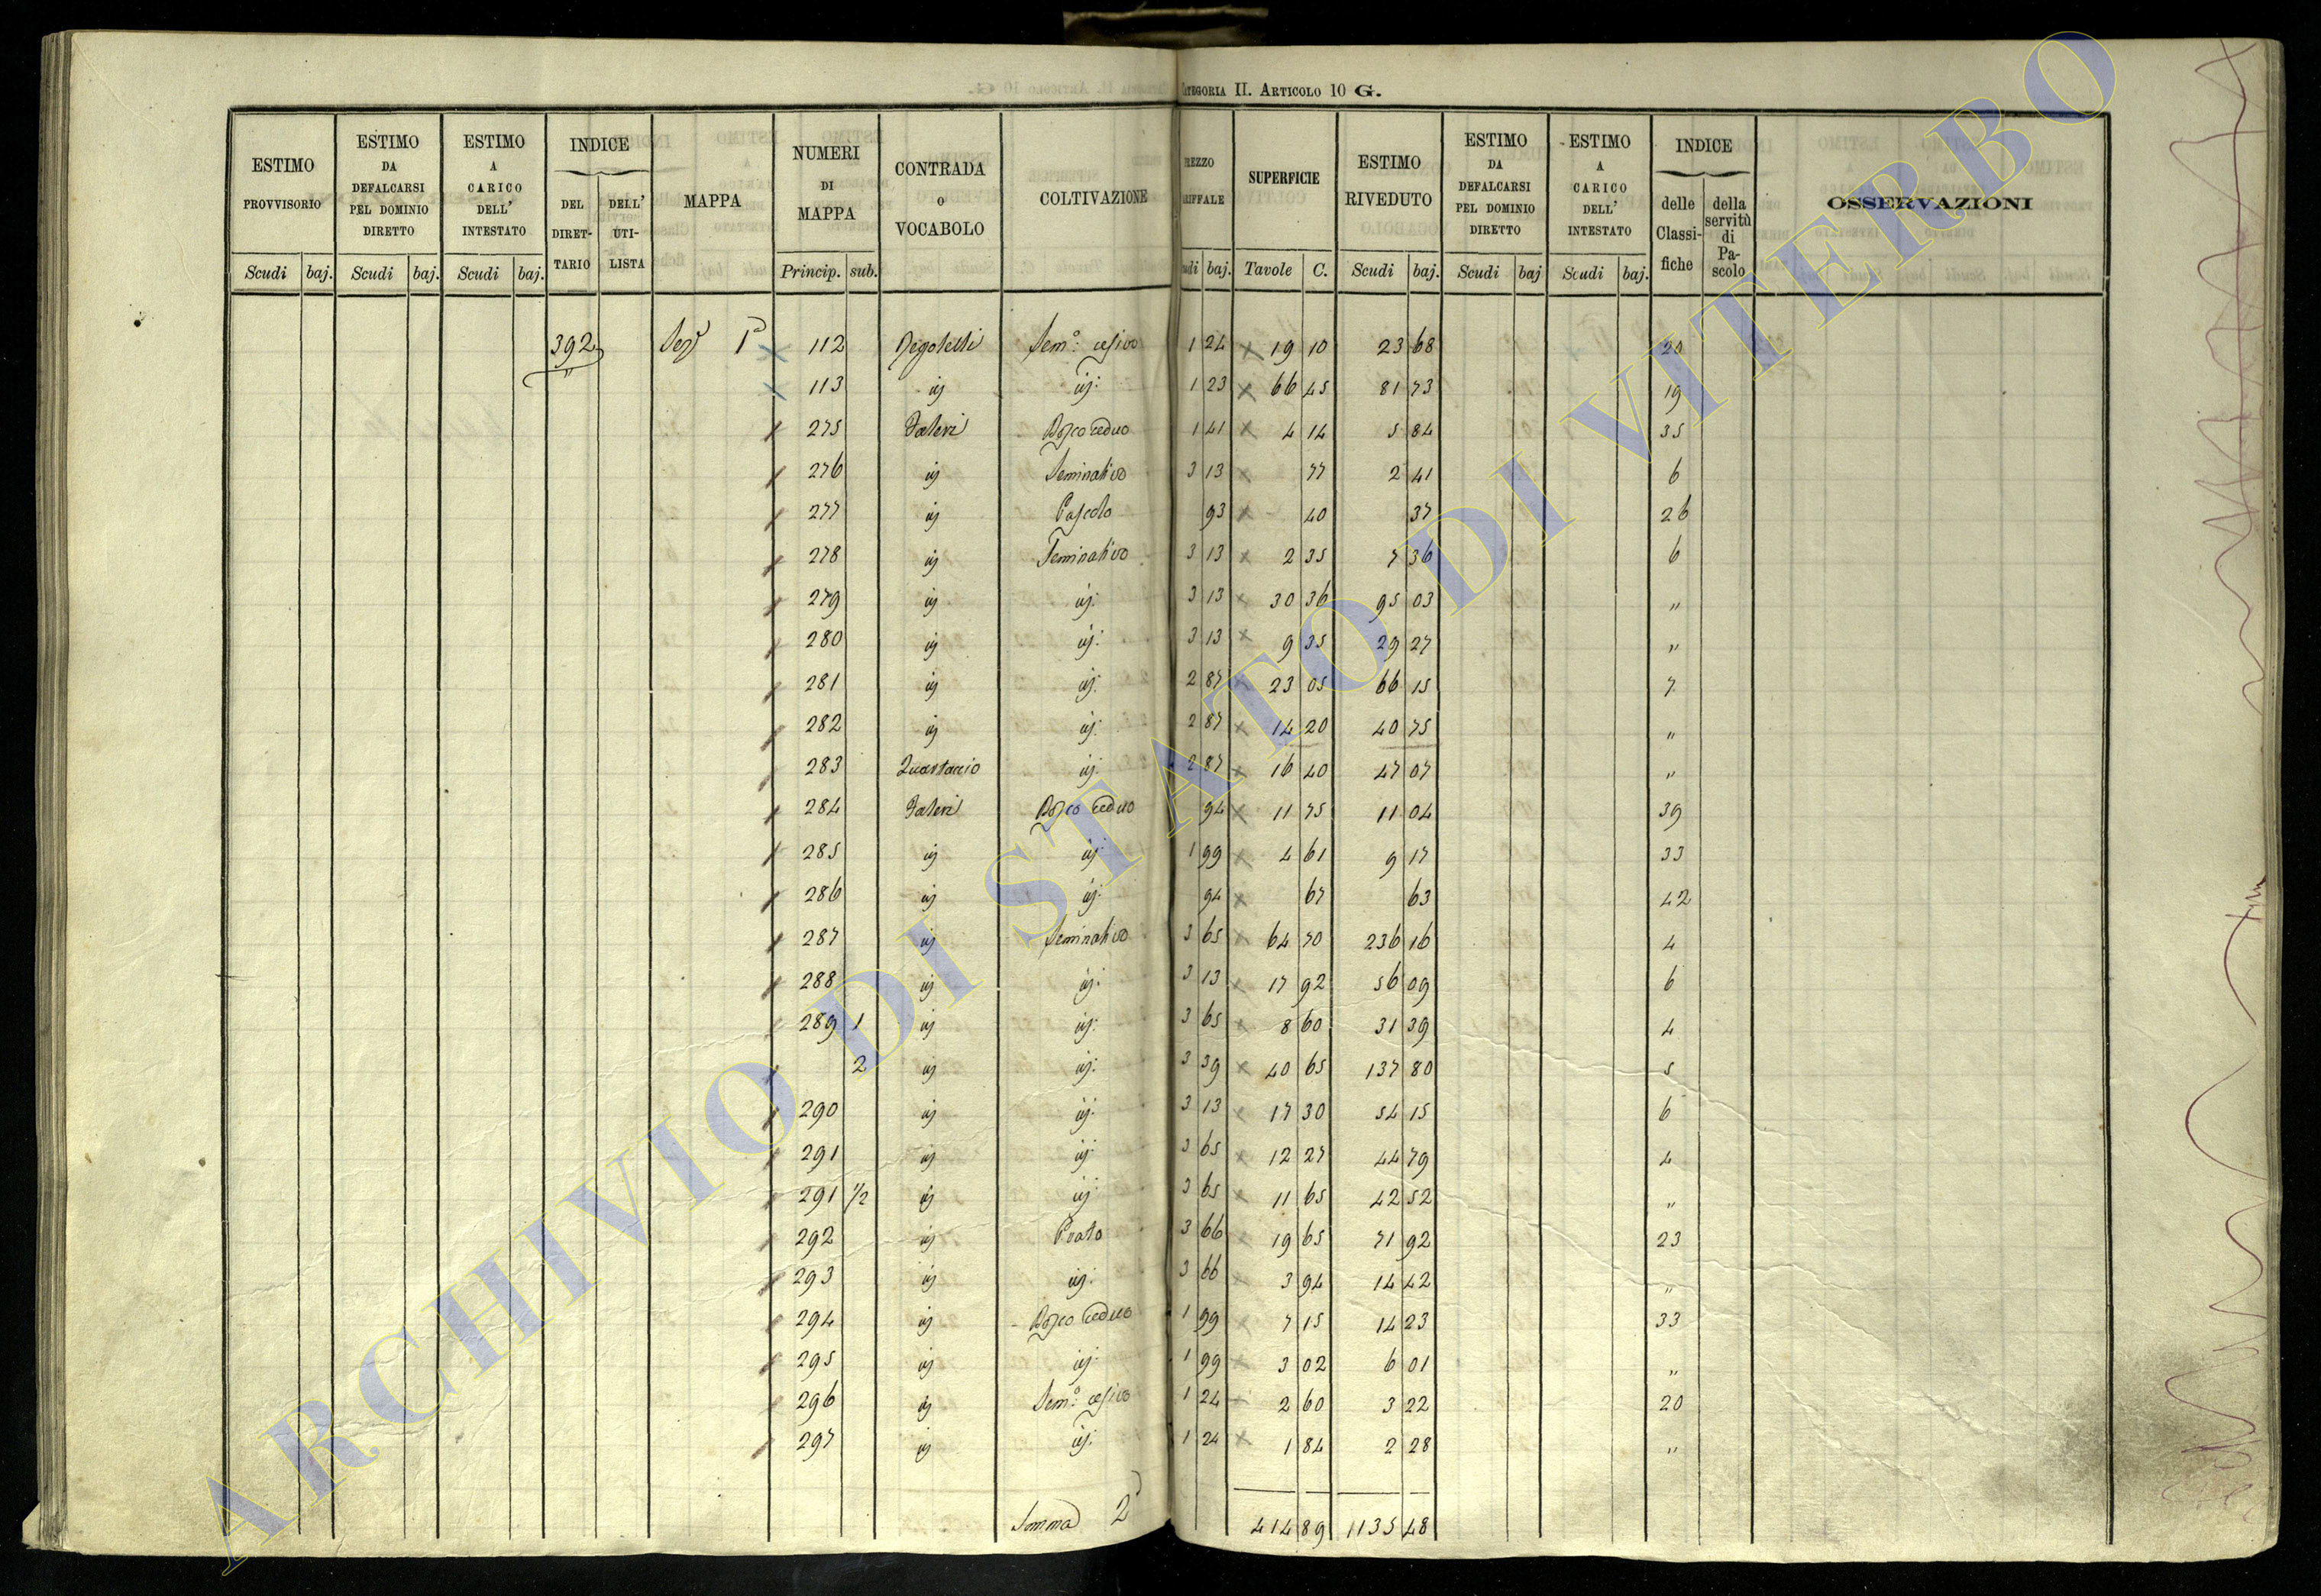 CATEGORIA II. ARTICOLO 10 G.
ESTIMO PROVVISORIO Scudi baj. ESTIMO DA DEFALCARSI PEL DOMINIO DIRETTO Scudi baj. ESTIMO A CARICO DELL' INTESTATO Scudi baj. INDICE DEL DIRETTARIO DELL' UTILISTA MAPPA NUMERI DI MAPPA Princip. sub. CONTRADA O VOCABOLO COLTIVAZIONE
REZZO RIFFALE udi baj. SUPERFICIE Tavole C. ESTIMO RIVEDUTO Scudi baj. ESTIMO DA DEFALCARSI PEL DOMINIO DIRETTO Scudi baj ESTIMO A CARICO DELL' INTESTATO Scudi baj. INDICE delle Classifiche della servitù di Pascolo OSSERVAZIONI
392 Sez. 1ª 112 Sem.º cesivo 1 24 19 10 23 68 20
" 113 idj idj: 1 23 66 45 81 73 19
275 Valeri Bosco ceduo 1 41 4 14 5 84 35
276 idj Seminativo 3 13 77 2 41 6
277 idj Pascolo 93 40 37 26
278 idj Seminativo 3 13 2 35 7 36 6
279 idj idj: 3 13 30 36 95 03 "
280 idj idj: 3 13 9 35 29 27 "
281 idj idj: 2 87 23 05 66 15 7
282 idj idj: 2 87 14 20 40 75 "
283 Quartaccio idj: 2 87 16 40 47 07 "
284 Valeri Bosco ceduo 94 11 75 11 04 39
285 idj idj: 1 99 4 61 9 17 33
286 idj idj: 94 67 63 42
287 idj Seminativo 3 65 64 70 236 16 4
288 idj idj: 3 13 17 92 56 09 6
289 1 idj idj: 3 65 8 60 31 39 4
2 idj idj: 3 39 40 65 137 80 5
290 idj idj: 3 13 17 30 54 15 6
291 idj idj: 3 65 12 27 44 79 4
291 1/2 idj idj: 3 65 11 65 42 52 "
292 idj Prato 3 66 19 65 71 92 23
293 idj idj: 3 66 3 94 14 42 "
294 idj Bosco ceduo 1 99 7 15 14 23 33
295 idj idj: 1 99 3 02 6 01 "
296 idj Sem.º cesivo 1 24 2 60 3 22 20
297 idj idj: 1 24 1 84 2 28 "
Somma 2ª 414 89 1135 48
ARCHIVIO DI STATO DI VITERBO